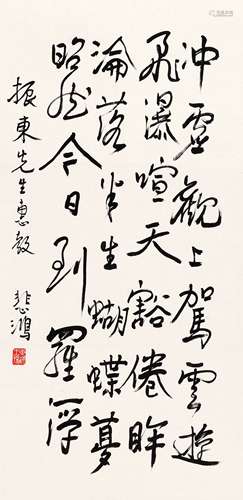 冲虚觀上駕雲遊
飛瀑喧天豁倦眸
淪落半生蝴蝶夢
昭然今日到羅浮
振東先生惠教
悲鴻